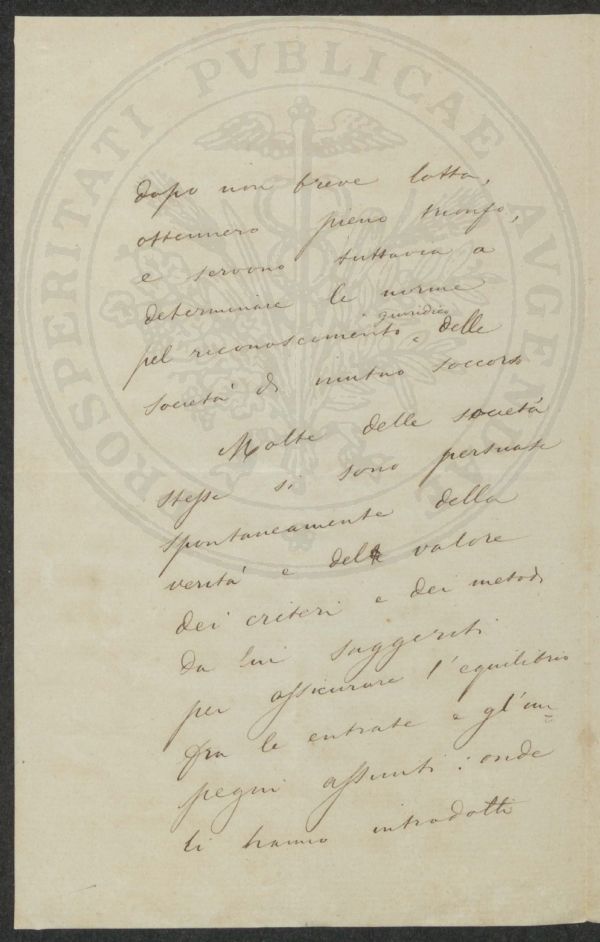 PROSPERITATI PVBLICAE AVGENDAE
dopo non breve lotta,
ottennero pieno trionfo,
e servono tuttavia a
determinare le norme
giuridico
pel riconoscimento delle
società di mutuo soccorso
Molte delle società
stesse si sono persuase
spontaneamente della
verità e del valore
dei criteri e dei metodi
da lui suggeriti
per assicurare l'equilibrio
fra le entrate e gl'im=
pegni assunti: onde
li hanno introdotti